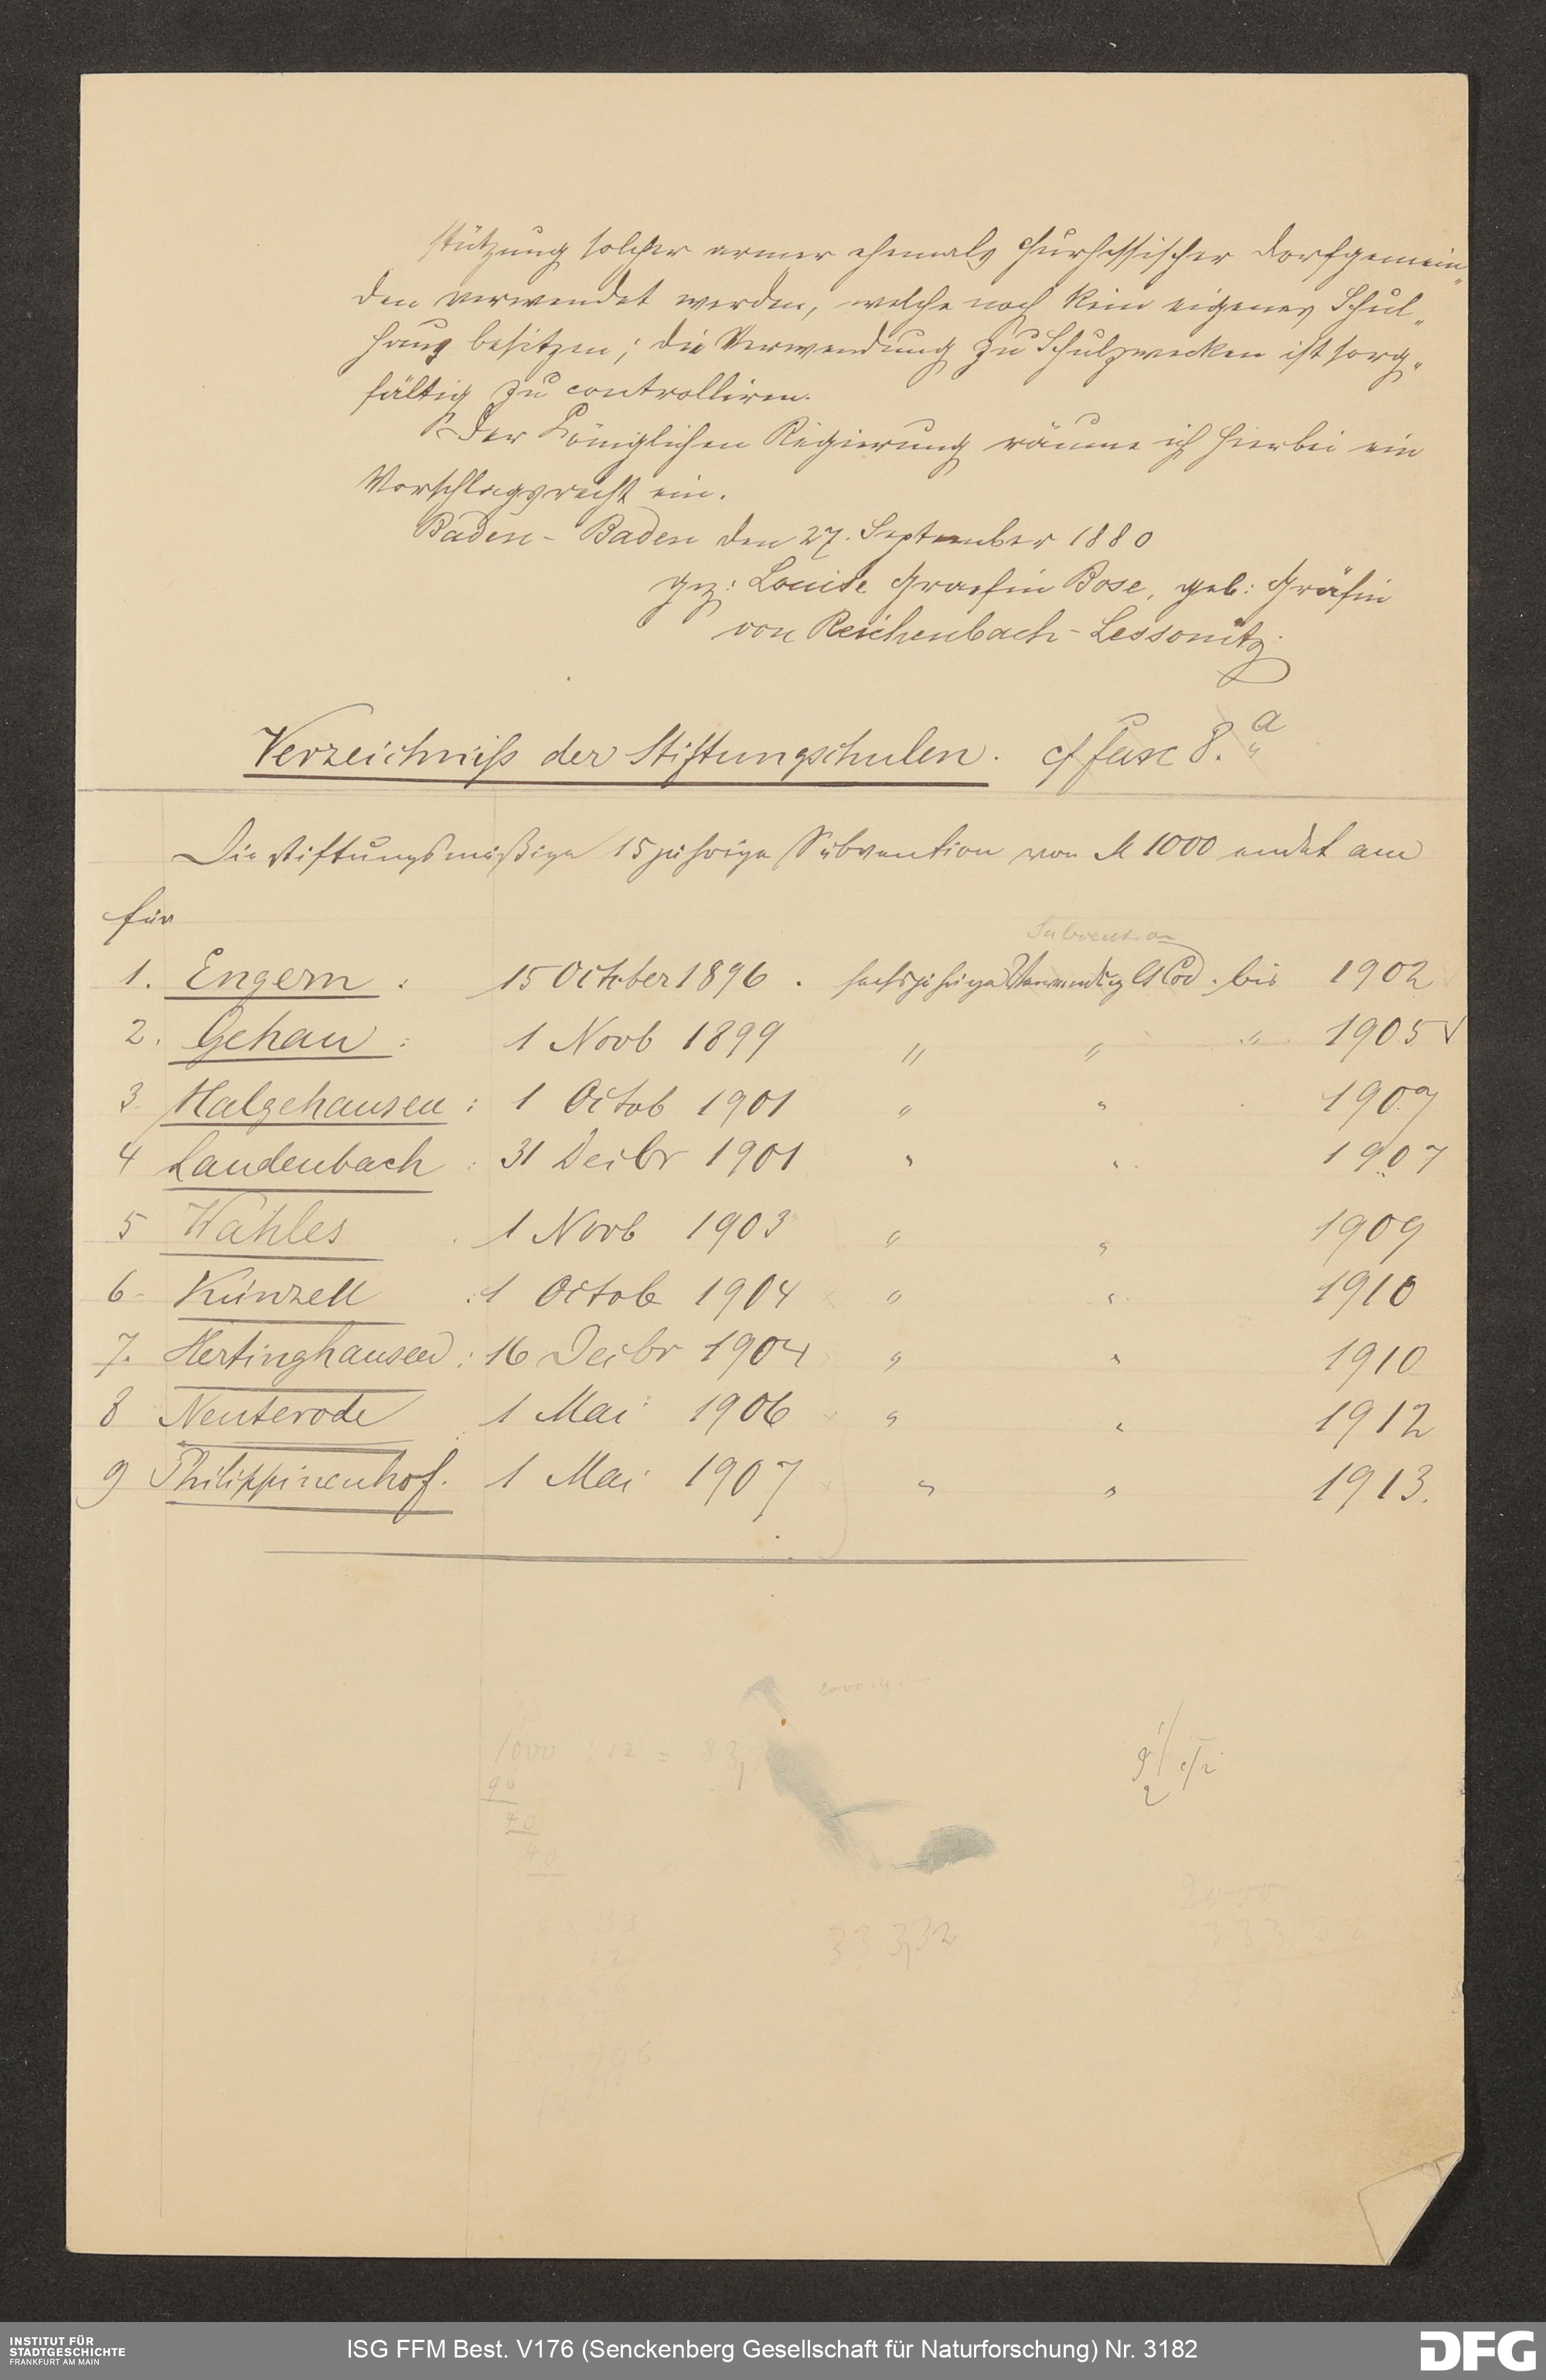 stützung solcher armer ehemals churhessischer Dorfgemein„
den verwendet werden, welche noch kein eigenes Schul„
haus besitzen; die Verwendung zu Schulzwecken ist sorg„
fältig zu controlliren.
Der Königlichen Regierung räume ich hierbei ein
Vorschlagsrecht ein.
Baden-Baden den 27. September 1880
gez: Louise Graefin Bose, geb: Gräfin
von Reichenbach-Lessonitz.
Verzeichniß der Stiftungschulen. cf fasc 8. a
Die stiftungsmäßige 15 jährige Subvention von M 1000 endet am
für
Subvention
1. Engern : 15 October 1896 . sechsjährige bis 1902
2. Gehau : 1 Novb 1899 " " " 1905 √
3. Halgehausen : 1 Octob 1901 " " 1907
4 Laudenbach : 31 Decbr 1901 " " 1907
5 Wahles . 1 Novb 1903 " " 1909
6- Künzell : 1 Octob 1904 x " " 1910
7. Hertinghausen : 16 Decbr 1904 " " 1910
8 Neuterode 1 Mai 1906 x " " 1912
9 Philippinenhof. 1 Mai 1907 x " " 1913.
1000 : 12 = 83,
96
40
40
2000
333,32
INSTITUT FÜR
STADTGESCHICHTE
FRANKFURT AM MAIN
ISG FFM Best. V176 (Senckenberg Gesellschaft für Naturforschung) Nr. 3182
DFG